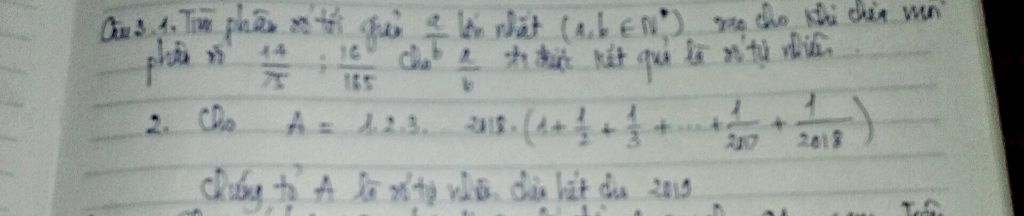 Câu 3. 1. Tìm phân số tối giản a/b lớn nhất (a, b ∈ N*) sao cho khi chia mỗi
phân số 14/75 ; 16/165 cho a/b ta được kết quả là số tự nhiên.
2. Cho A = 1.2.3. ... 2018.(1 + 1/2 + 1/3 + ... + 1/2017 + 1/2018)
Chứng tỏ A là số tự nhiên chia hết cho 2019